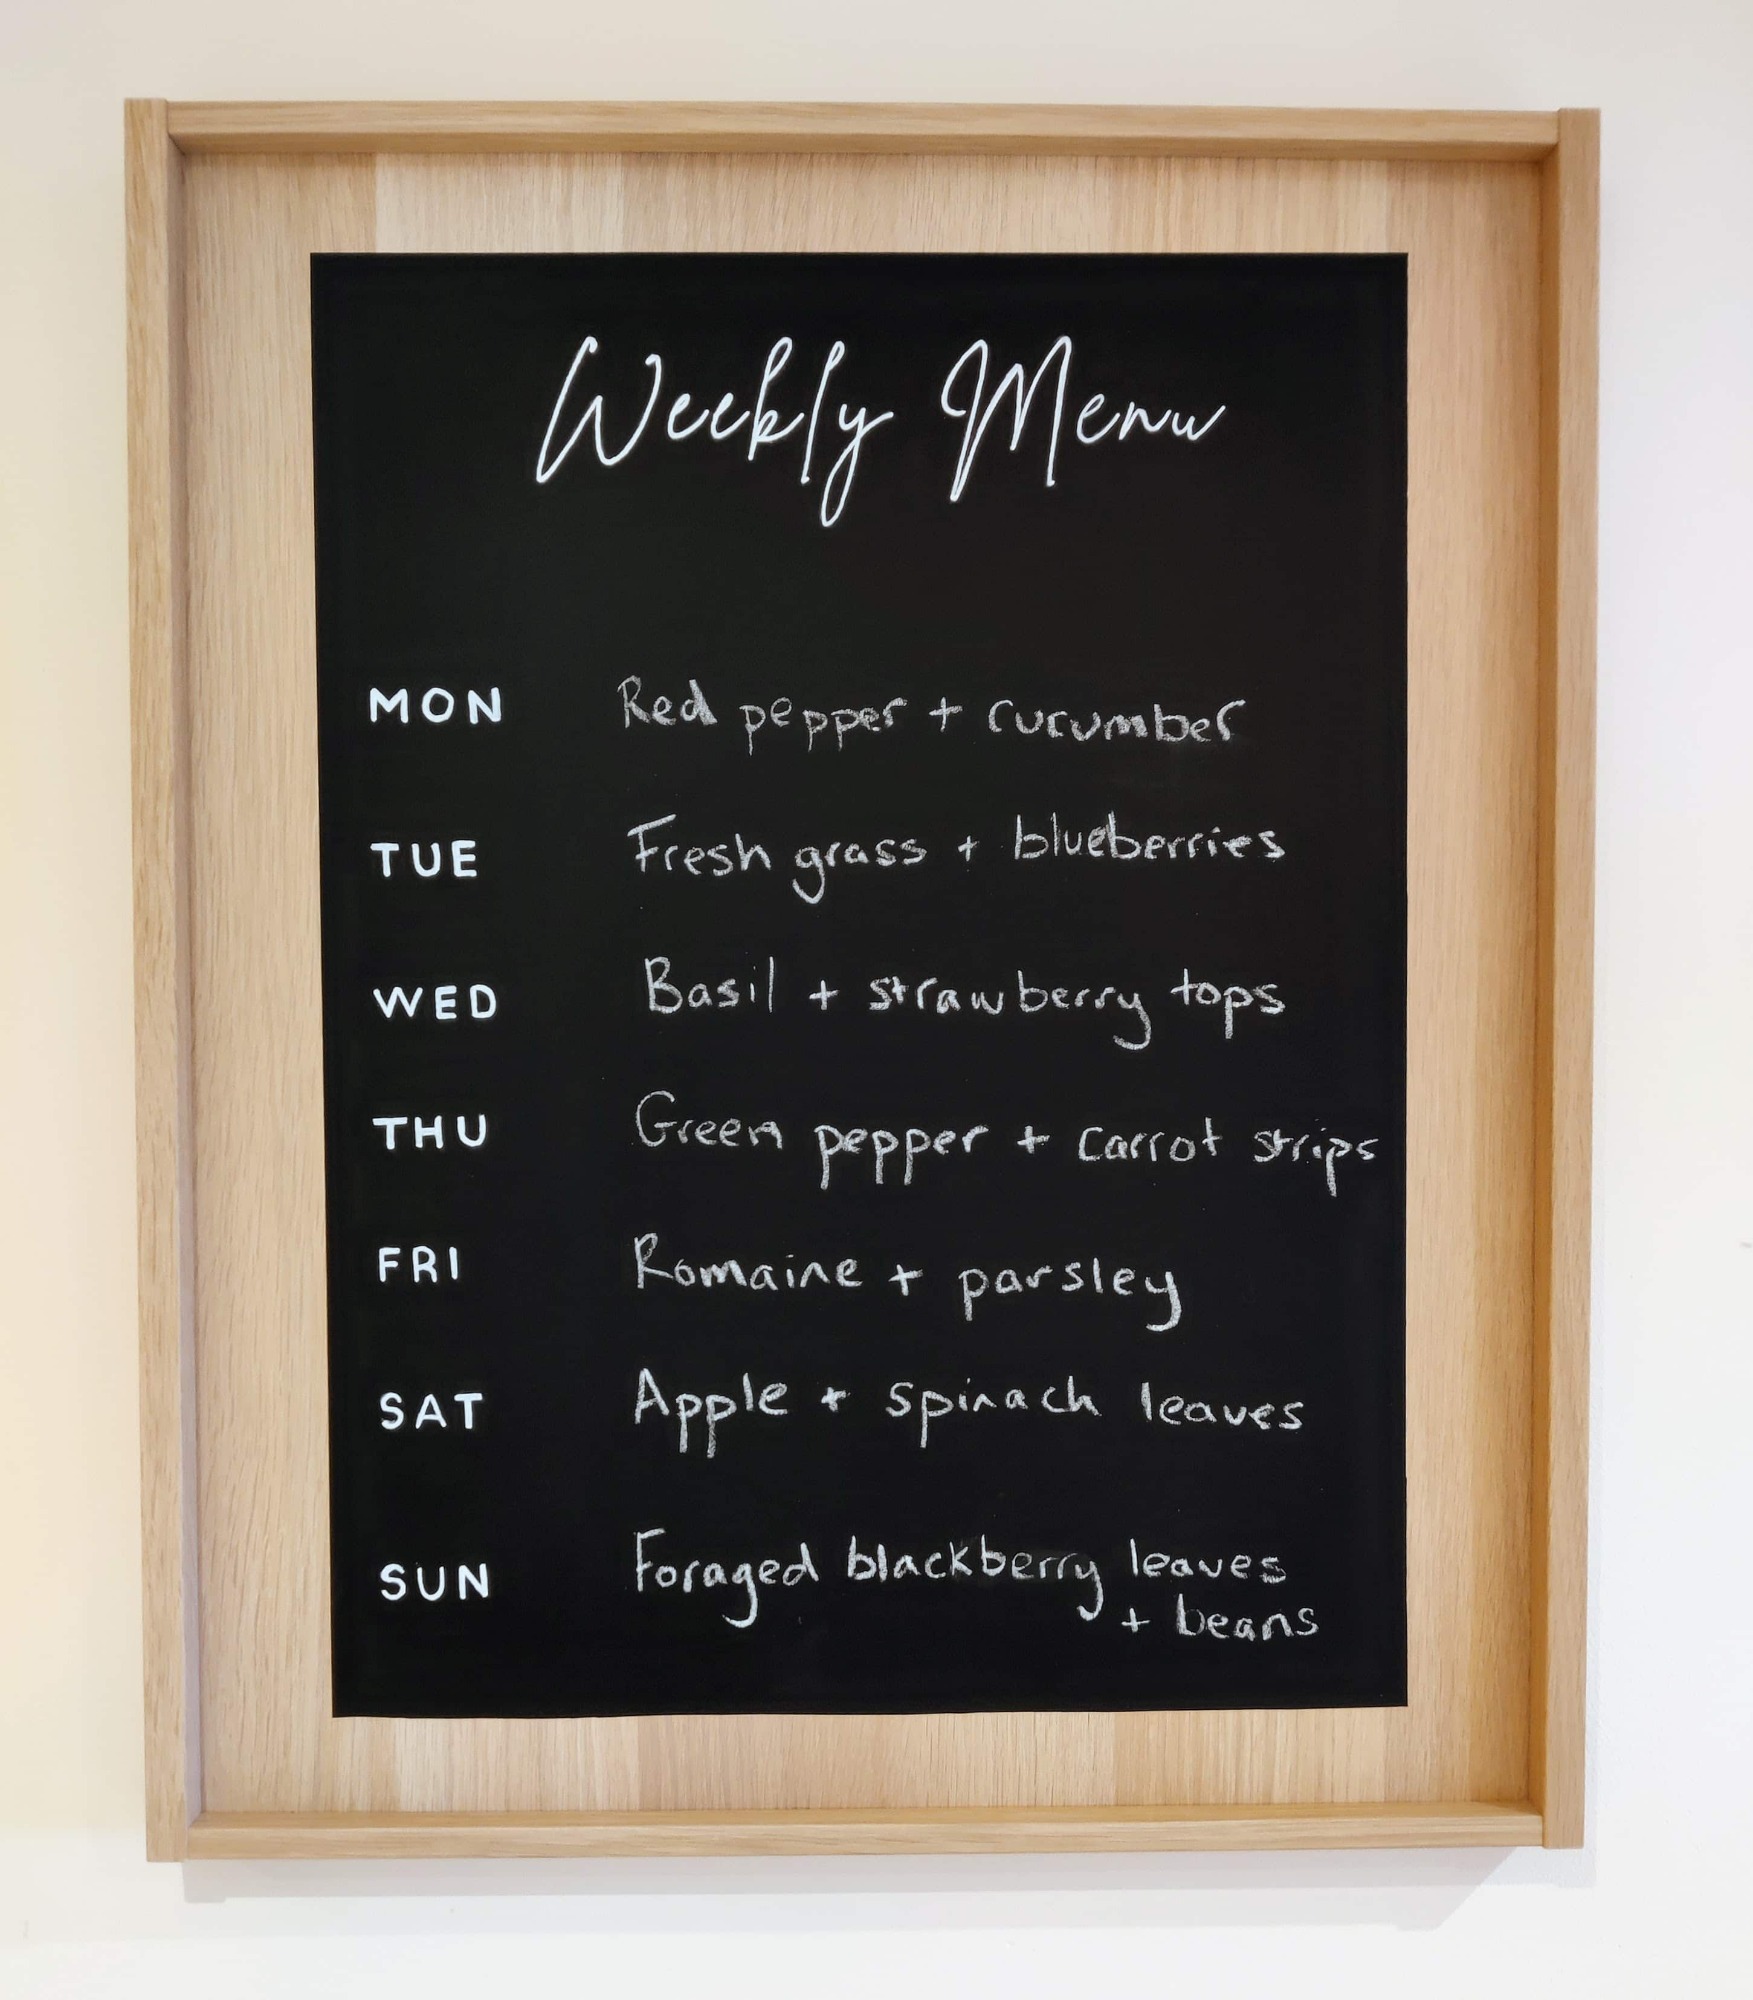 Weekly Menu
MON Red pepper + cucumber
TUE Fresh grass + blueberries
WED Basil + strawberry tops
THU Green pepper + carrot strips
FRI Romaine + parsley
SAT Apple + spinach leaves
SUN Foraged blackberry leaves
+ beans